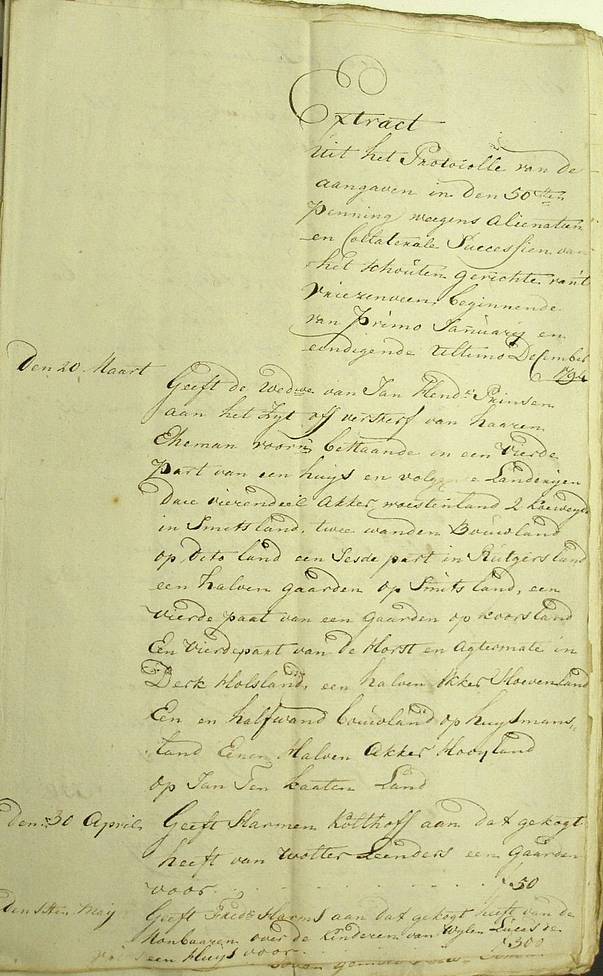 Extract
Uit het Protocolle van de
aangaven in den 50sten
Penning weegens alienatien
en Collaterale Successien van
het schouten gerichte van't
Vriezenveen, beginnende
van Primo Januarij en
eendigende Ultimo December
Den 20 Maart
Geeft de Wedwe van Jan Hendr Prinsen
aan het Lyf off versterf van haaren
Eheman voorn bestaande in een vierde
Part van een huys en Landerijen
Drie vierendeel Akker woestenland 2 koeweyde
in Smitsland, twee wanden Bouwland
op dito land een Sesde part in Rutgersland
een halven gaarden op Smits land, een
vierde part van een gaarden op koorsland
Een vierdepart van de Horst en agtermate in
Derk Holsland, een halven Akker Hoevenland
Een en half wand bouwland op huysmans
land Eenen Halven Akker Hooyland
op Jan Ten kaaten Land
den 30 April
Geeft Harmen Kotthoff aan dat gekogt
heeft van Wolter Leenders een gaarden
voor . . . . . . . . 50
den 1sten May
Geeft Fredr Harms aan dat gekogt heeft van de
over de kinderen van Wylen Lucas
een Huys voor . . . 300